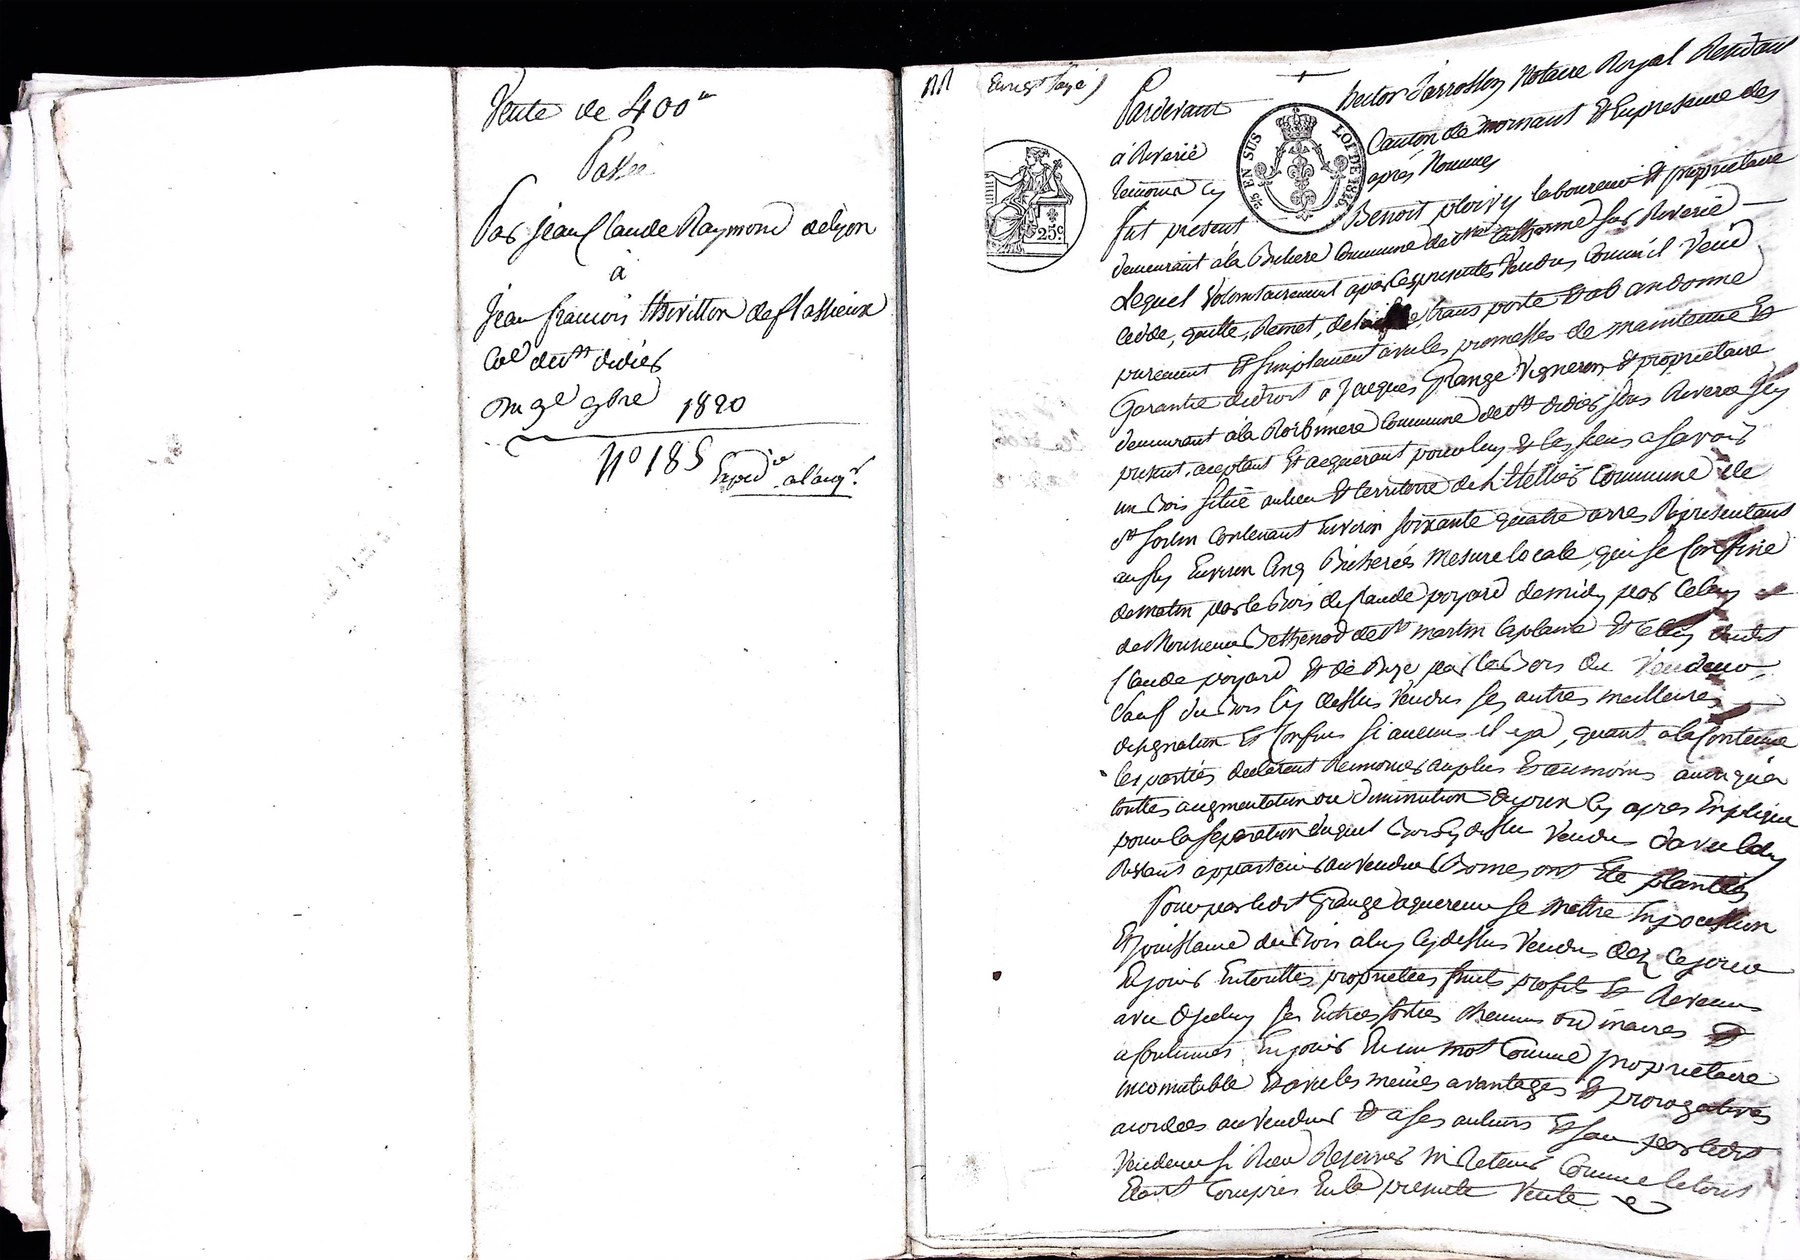 Vente de 400#
Passée
Par jean Claude Raymond de lyon
à
jean francois thivillon de flassieux
Cne de st didier
du 9e 9bre 1820
N° 185
Expedié a l'acqr
Enregt payé
Pardevant hector Jarrosson Notaire Royal Residant
à Riverié Canton de mornant Et En presence des
temoins cy après Nommes
fut present Benoit ploivy laboureur Et propriétaire
demeurant à la Buchere Commune de ste Catherine sur Riverie
Lequel Volontairement apar ces presentes Vendu Comm'il Vend
cedde, quitte, Remet, delaisse, transporte Et abandonne
purement Et simplement avec les promesses de maintenue Et
Garantie de droit a Jacques Grange Vigneron Et propriétaire
demeurant à la Commune de st didier sous Riverie Icy
present, aceptant Et acquerant pour luy Et les siens a savoir
un Bois situé au lieu Et territoire de Commune de
st sorlin Contenant Environ soixante quatre arres Représentant
aussy Environ Cinq Bicherées Mesure locale, qui se Confine
de matin par le Bois de Claude poyard de midy par Celuy
de Monsieur Bethenod de st martin la plaine Et Celuy dudit
Claude poyard Et de Bize par le Bois du Vendeur,
Sauf du Bois Cy dessus Vendu ses autres meilleures
designation Et Confins si aucuns il y a, quant a la Contenue
les parties declarent Renoncer au plus Et au moins ainsi qu'a
touttes augmentation ou diminution du prix Cy apres Expliqué
pour la separation duquel Bois Cy dessus Vendu d'avec Celuy
Restant appartenir au Vendeur Bornes ont Eté plantées
Pour par ledit Grange aquereur se Mettre En possession
Et jouissance du Bois a luy Cy dessus Vendu dez Ce jour
En jouir En touttes proprietées fruits profits Et Revenus
avec d'jceluy ses Entrées sorties Chemins ordinaires Et
acoutumés, En jouir En un mot Comme proprietaire
incomutable Et avec les memes avantages Et prerogatives
acordées au Vendeur Et a ses auteurs Et sans par ledit
Vendeur si Rien Reserver ni Retenir Comme le tout
Etant Compris En la presente Vente
25 EN SUS
LOI DE 1816
25 c